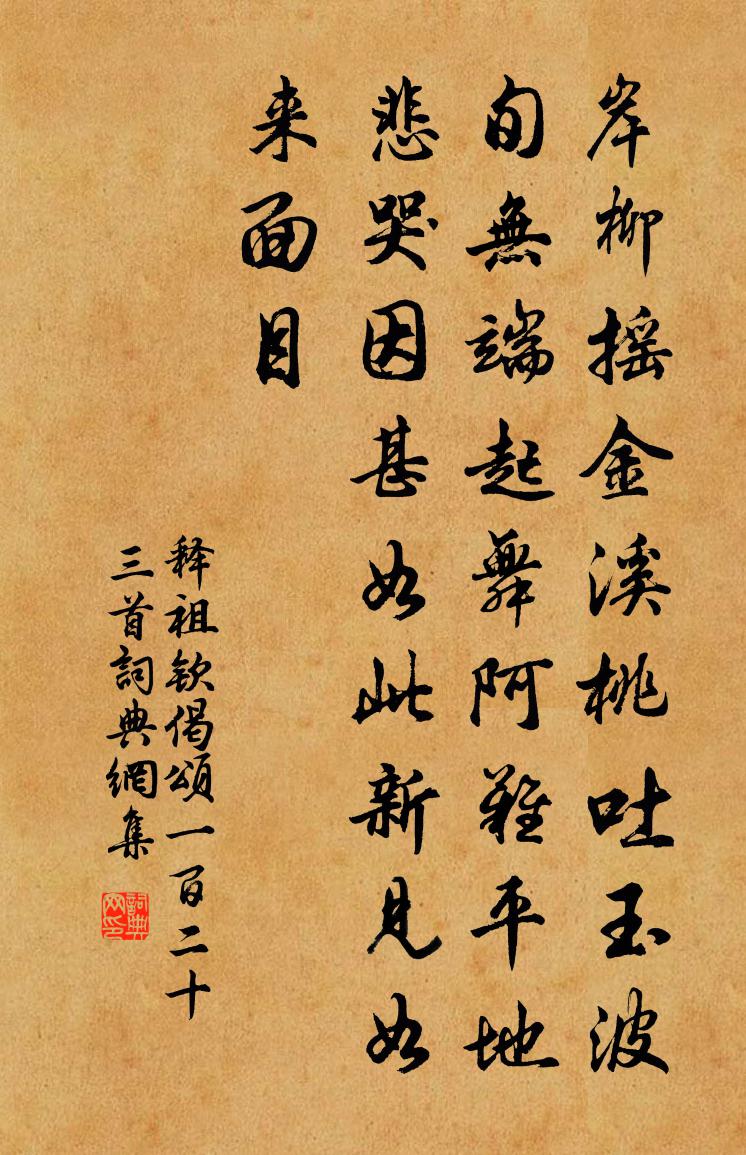 岸柳摇金溪桃吐玉波
旬無端起舞阿難平地
悲哭因甚如此新見如
来面目
释祖钦偈頌一百二十
三首詞典網集
詞典
网印